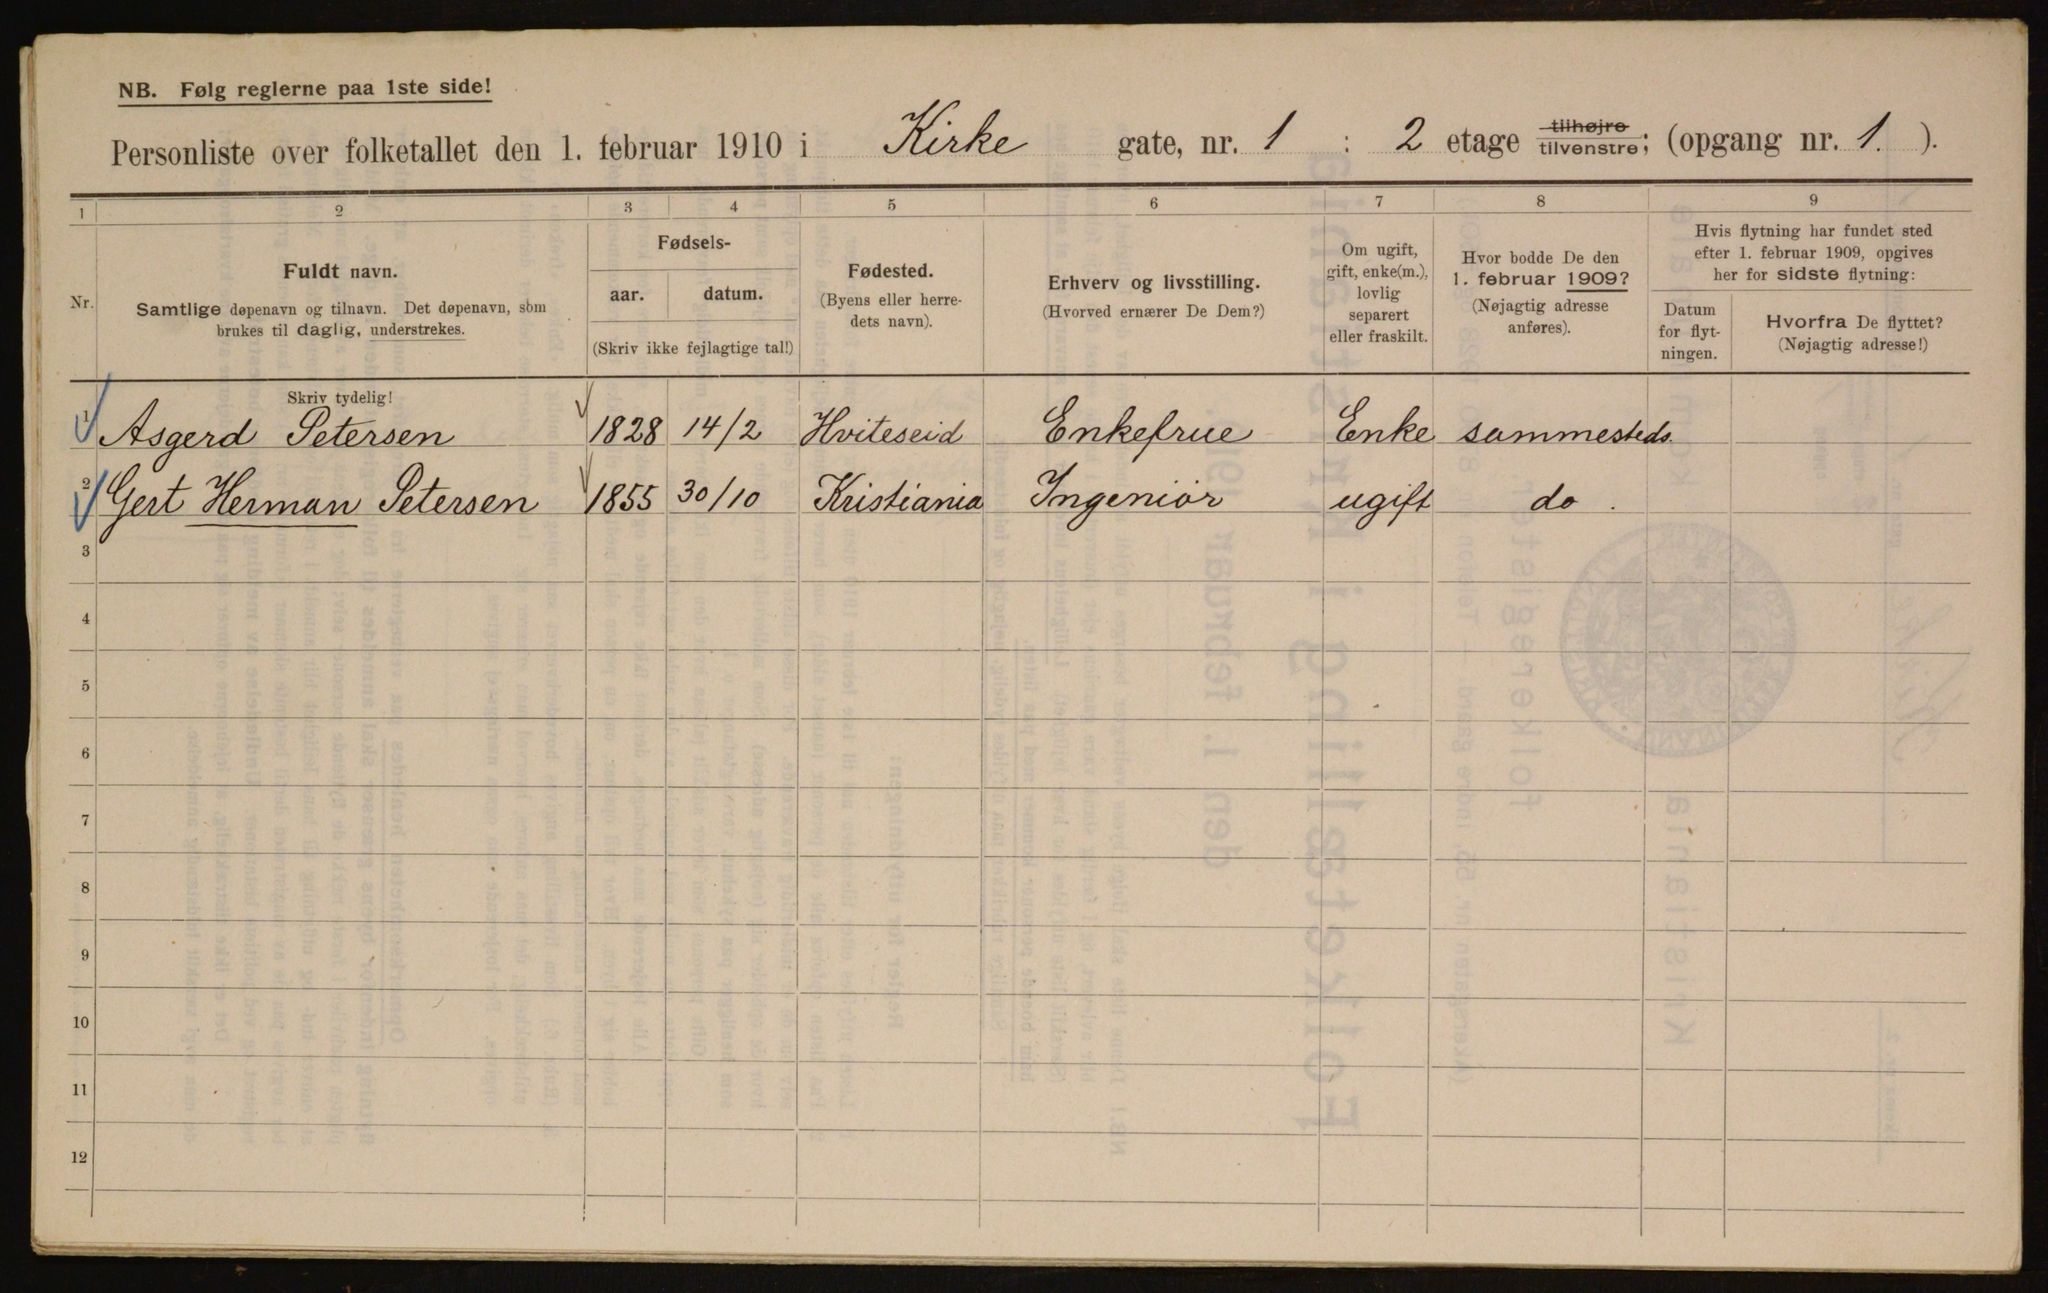 NB. Følg reglerne paa 1ste side!
Personliste over folketallet den 1. februar 1910 i Kirke gate, nr. 1 : 2 etage tilhøjre tilvenstre; (opgang nr. 1. ).
1 2 3 4 5 6 7 8 9
Nr.
Fuldt navn.
Samtlige døpenavn og tilnavn. Det døpenavn, som
brukes til daglig, understrekes.
Fødsels-
aar. datum.
(Skriv ikke fejlagtige tal!)
Fødested.
(Byens eller herre-
dets navn).
Erhverv og livsstilling.
(Hvorved ernærer De Dem?)
Om ugift,
gift, enke(m.),
lovlig
separert
eller fraskilt.
Hvor bodde De den
1. februar 1909?
(Nøjagtig adresse
anføres).
Hvis flytning har fundet sted
efter 1. februar 1909, opgives
her for sidste flytning:
Datum
for flyt-
ningen.
Hvorfra De flyttet?
(Nøjagtig adresse!)
Skriv tydelig!
1 Asgerd Petersen 1828 14/2 Hviteseid Enkefrue Enke sammesteds.
2 Gert Herman Petersen 1855 30/10 Kristiania Ingeniør ugift do.
3
4
5
6
7
8
9
10
11
12